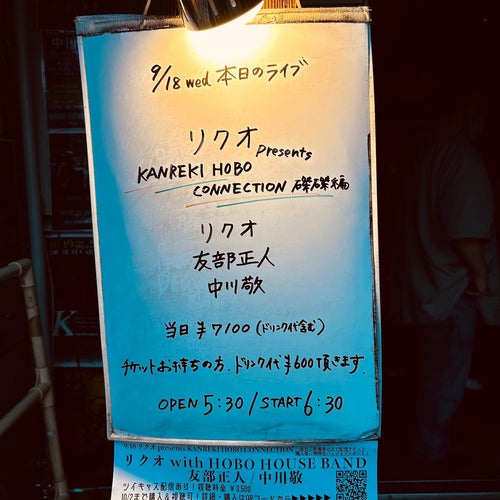 9/18 wed 本日のライブ
リクオ presents
KANREKI HOBO
CONNECTION 磔磔編
リクオ
友部正人
中川敬
当日 ¥7100 (ドリンク代含む)
チケットお持ちの方、ドリンク代¥600頂きます.
OPEN 5:30 / START 6:30
9/18 リクオ presents KANREKI HOBO CONNECTION
リクオ with HOBO HOUSE BAND
友部正人 / 中川敬
ツイキャス配信あり！視聴料金 ¥3,500
10/2まで購入&視聴可！詳細・購入はQRコードから▶▶▶▶▶